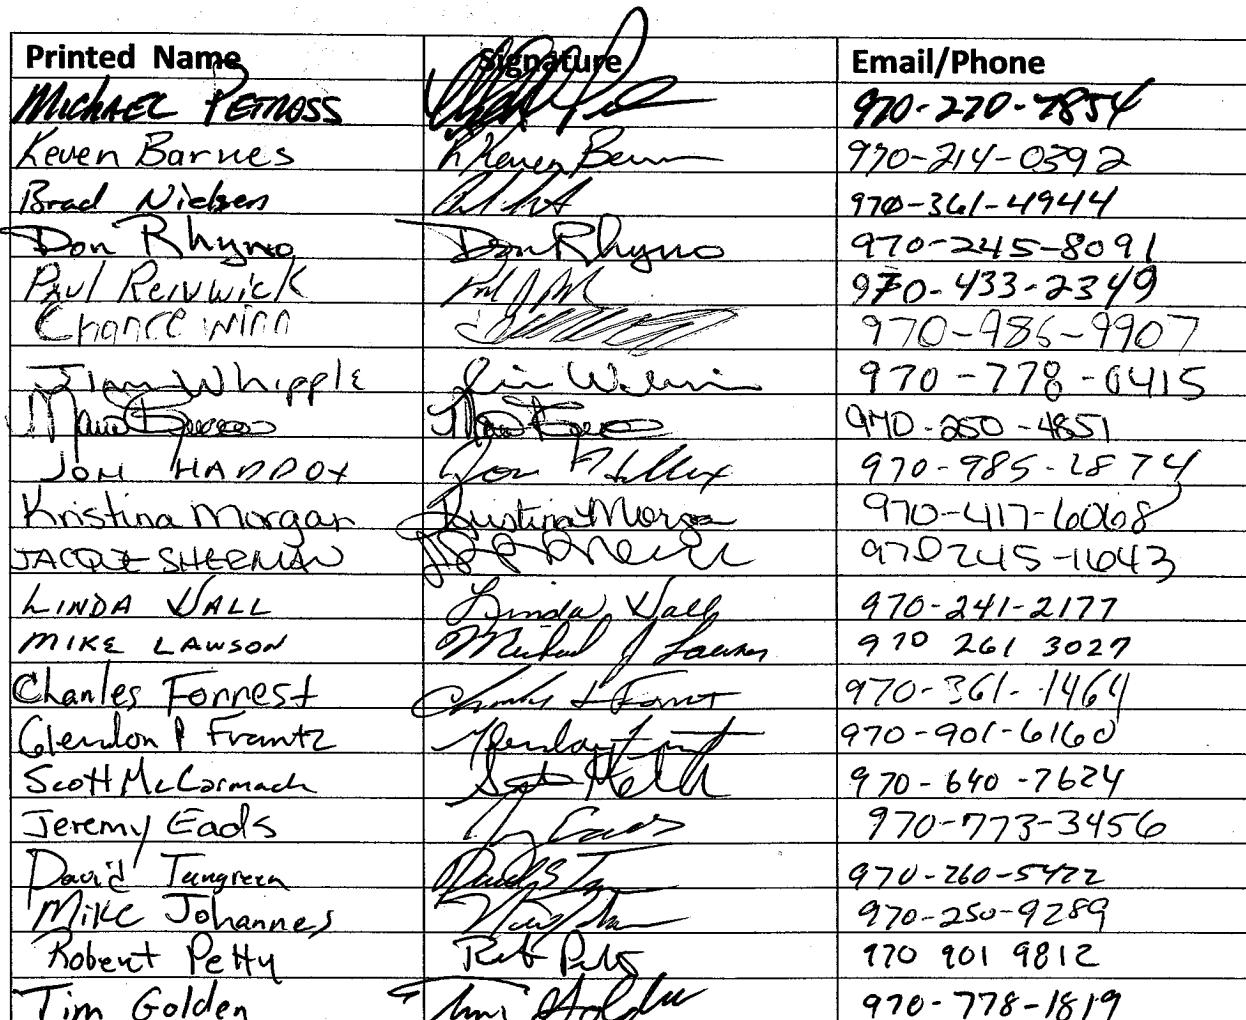 Printed Name Signature Email/Phone
MICHAEL PETROSS 970-270-7854
Keven Barnes 970-214-0392
Brad Nielsen 970-361-4944
Don Rhyno Don Rhyno 970-245-8091
Paul Renwick 970-433-2349
Chance winn 970-986-9907
Jim Whipple 970-778-0415
970-250-4851
JON HADDOX Jon 970-985-2874
Kristina Morgan Kristina Morgan 970-417-6068
JACQUE SHERMAN 970 245-1643
LINDA WALL Linda Wall 970-241-2177
MIKE LAWSON Michael J Lawson 970 261 3027
Charles Forrest 970-361-1464
Glendon P Frantz 970-901-6160
Scott McCormack 970-640-7624
Jeremy Eads Eads 970-773-3456
David 970-260-5422
Mike Johannes 970-250-9289
Robert Petty 970 901 9812
Tim Golden Tim Golden 970-778-1819